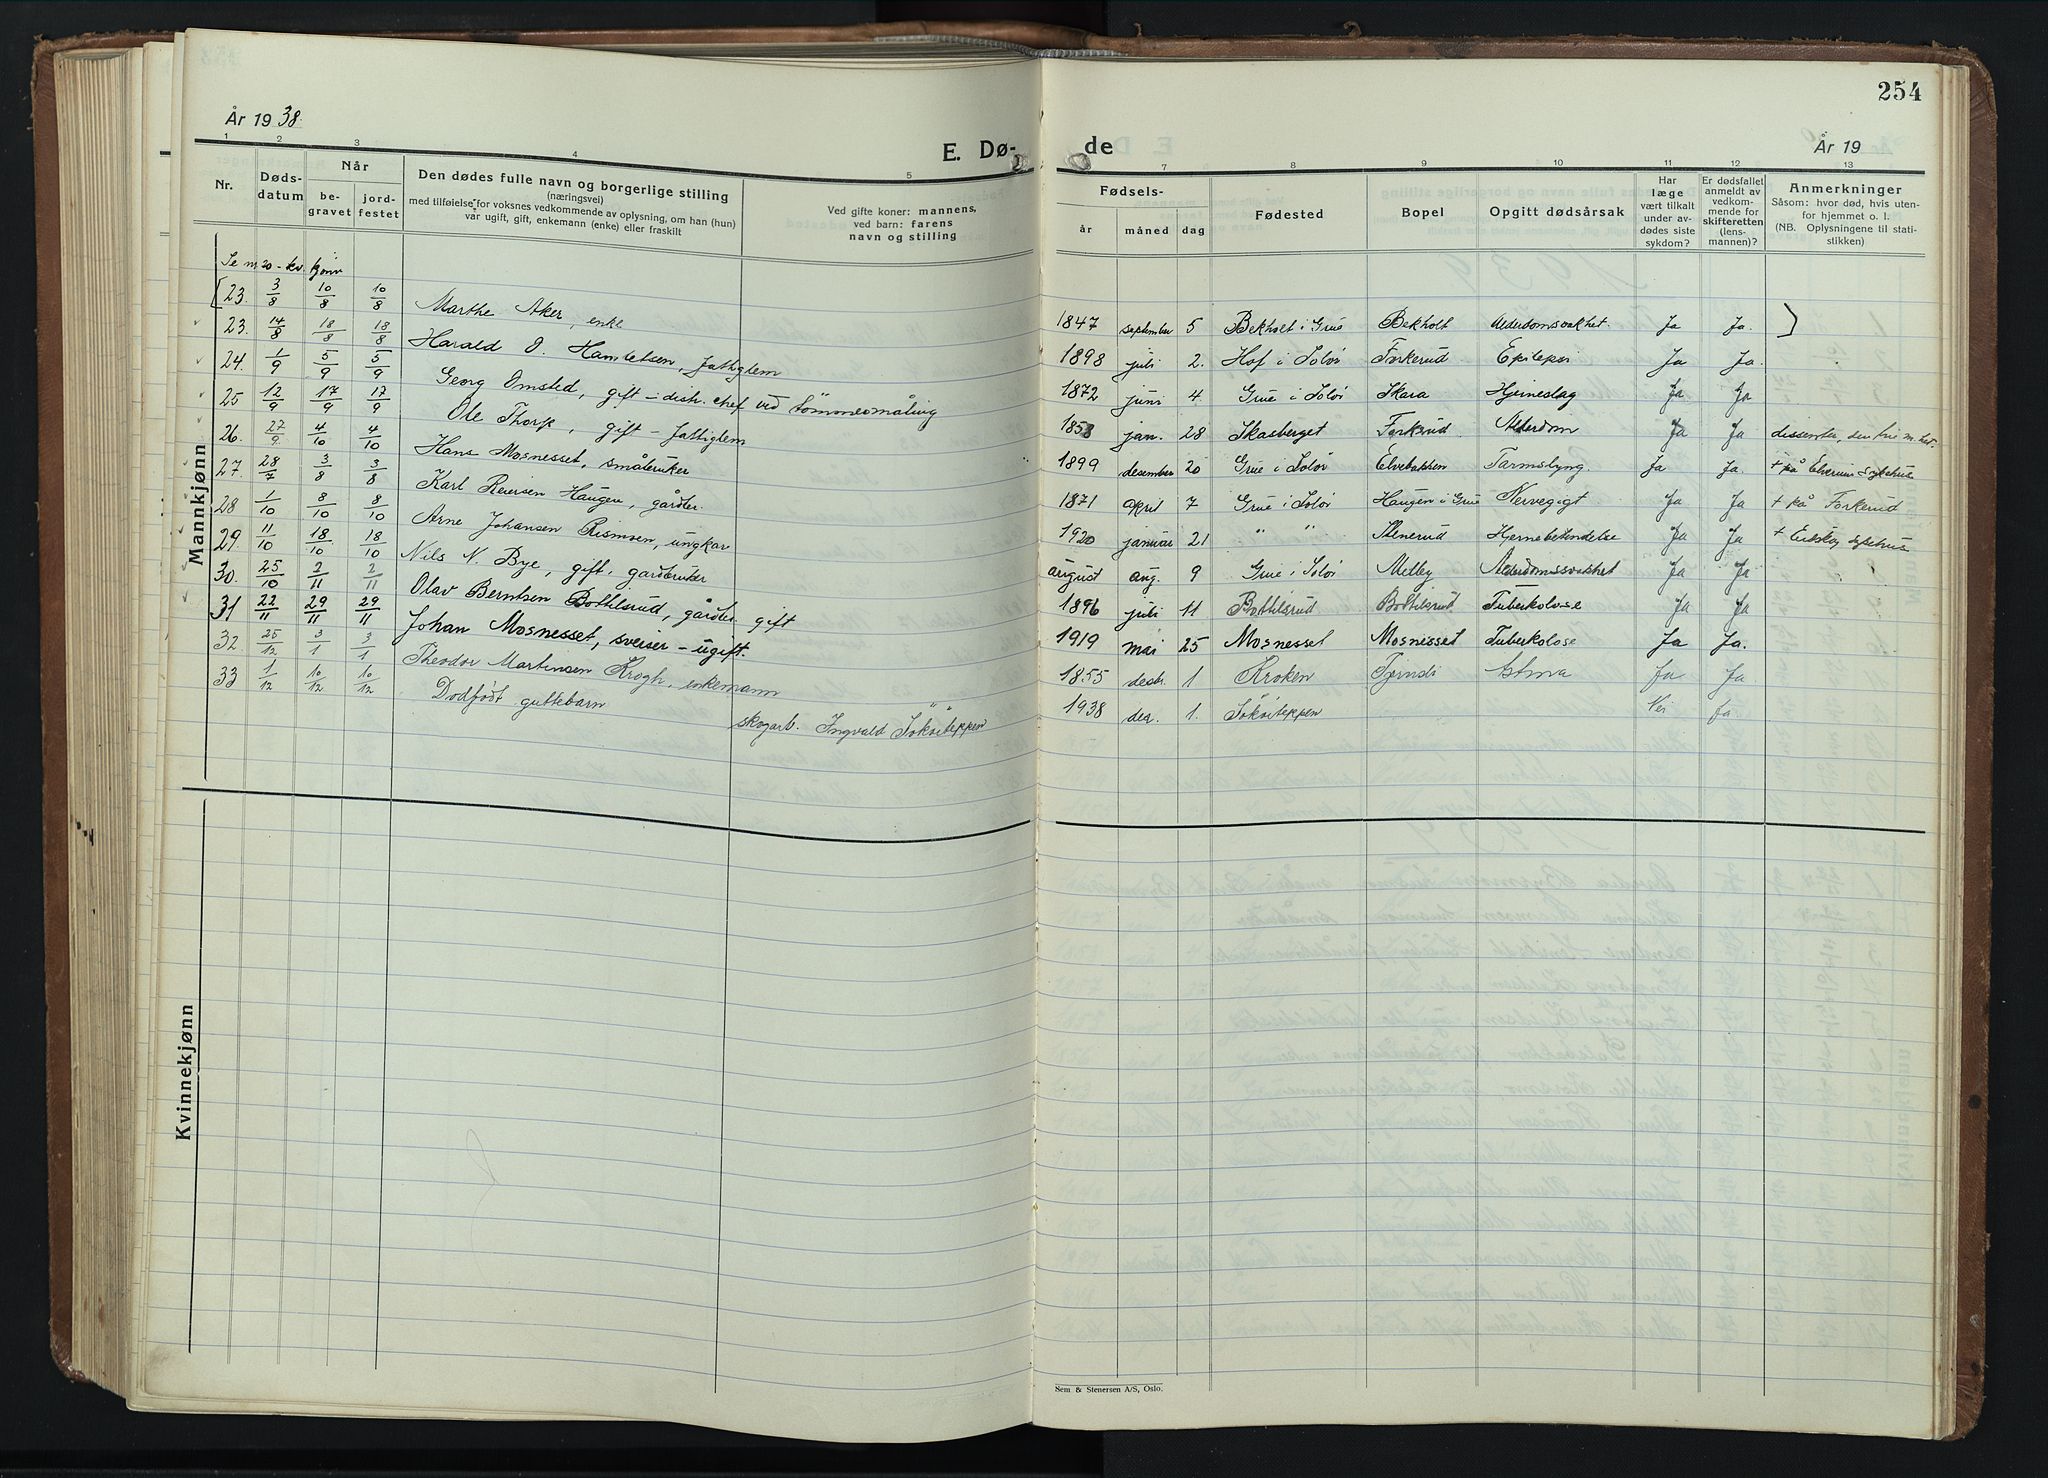 254
År 1938.
E. Dø-
de
År 19
1 2 3 4 5
7 8 9 10 11 12 13
Nr.
Døds-
datum
Når
be-
gravet
jord-
festet
Den dødes fulle navn og borgerlige stilling
(næringsvei)
med tilføielse for voksnes vedkommende av oplysning, om han (hun)
var ugift, gift, enkemann (enke) eller fraskilt
Ved gifte koner: mannens,
ved barn: farens
navn og stilling
Fødsels-
år måned dag
Fødested
Bopel
Opgitt dødsårsak
Har
læge
vært tilkalt
under av-
dødes siste
sykdom?
Er dødsfallet
anmeldt av
vedkom-
mende for
skifteretten
(lens-
mannen)?
Anmerkninger
Såsom: hvor død, hvis uten-
for hjemmet o. l.
(NB. Oplysningene til stati-
stikken)
Mannkjønn
Se nr. 20 - kv. kjønn
[23. 3/8 10/8 10/8 Marthe Aker, enke 1847 september 5 Bekholt i Grue Bekholt Alderdomsvakhet. Ja Ja. ]
23. 14/8 18/8 18/8 Harald O. Hamletsen, Fattiglem 1898 juli 2. Hof i Solør Forkerud Epilepsi Ja Ja.
24. 1/9 5/9 5/9 Georg Omsted, gift - distr. chef ved tømmermåling 1872 juni 4. Grue i Solør Skara Hjerneslag Ja Ja
25 12/9 17/9 17/9 Ole Thorp, gift - Fattiglem 1858 jan. 28 Skasberget Forkerud Alderdom Ja Ja dissenter, den frie m.
26. 27/9 4/10 4/10 Hans Mosnesset, småbruker 1899 desember 20 Grue i Solør Elvebakken Tarmslyng Ja Ja + på Elverum Sykehus
27. 28/7 3/8 3/8 Karl Reiersen Haugen, gårdbr. 1871 april 7 Grue i Solør Haugen i Grue Nervegigt Ja Ja + på Forkerud
28 1/10 8/10 8/10 Arne Johansen Rismoen, ungkar 1920 januar 21 " " Stenerud Hjernebetendelse Ja Ja + Eidskog sykehus
29. 11/10 18/10 18/10 Nils N. Bye, gift, gardbruker august aug. 9 Grue i Solør Melby Alderdomssvakhet Ja Ja
30. 25/10 2/11 2/11 Olav Berntsen Bottilsrud, gårdbr. gift 1896 juli 11 Bottilsrud Bottilsrud Tuberkolose Ja Ja
31 22/11 29/11 29/11 Johan Mosnesset, sveiser - ugift. 1919 mai 25 Mosnesset Mosnesset Tuberkolose Ja Ja.
32. 25/12 3/1 3/1 Theodor Martinsen Krogh, enkemann 1855 desbr. 1 Kroken Tjernsli Astma Ja Ja
33 1/12 10/12 10/12 Dødfødt guttebarn skogarb. Ingvald Søkviteppen 1938 des. 1. Søkviteppen Nei Ja
Kvinnekjønn
Sem & Stenersen A/S, Oslo.